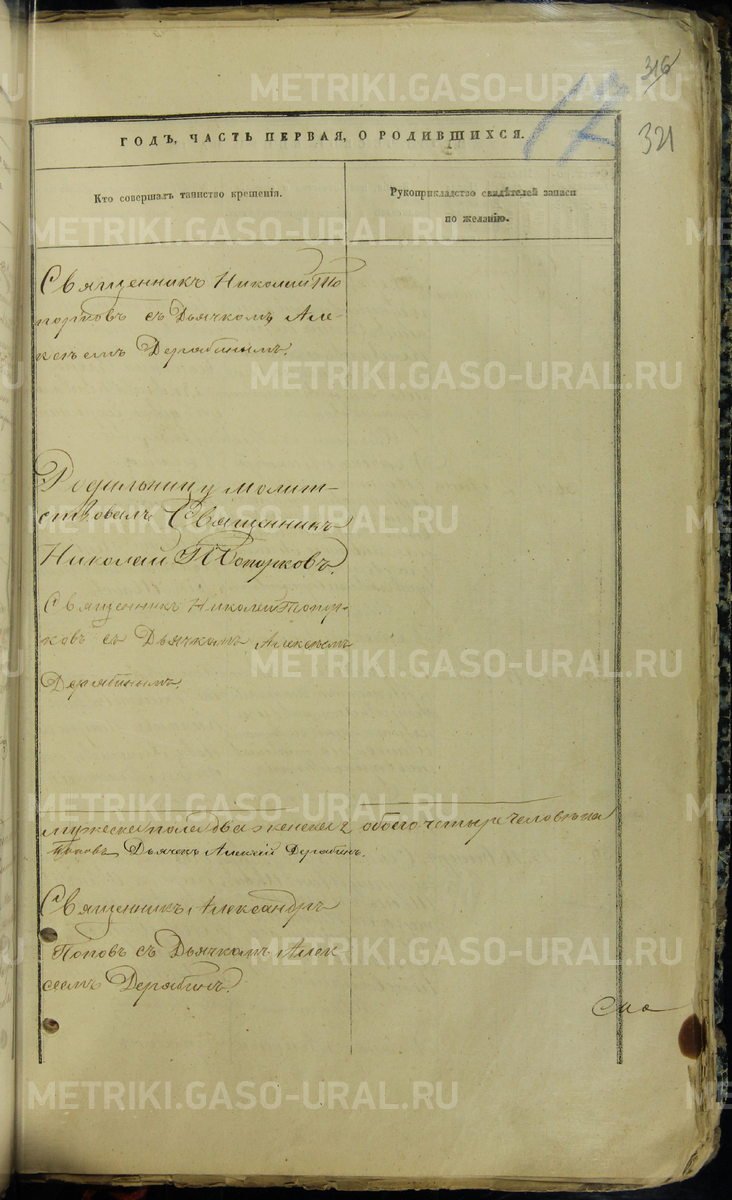 316
321
17
ГОДЪ, ЧАСТЬ ПЕРВАЯ, О РОДИВШИХСЯ.
Кто совершалъ таинство крещенія.
Рукоприкладство свидѣтелей записи
по желанію.
Священникъ Николай То
порковъ съ Дьячкомъ Але-
ксѣемъ Дерябинымъ.
Родильницу молит-
ствовалъ Священникъ
Николай Топорковъ.
Священникъ Николай Топор-
ковъ съ Дьячкомъ Алексѣемъ
Дерябинымъ.
мужеска пола два женска 2 обоего четыре человѣка
Поповъ Дьячекъ Алексѣй Дерябинъ.
Священникъ Александръ
Поповъ съ Дьячкомъ Алек
сеемъ Дерябин
METRIKI.GASO-URAL.RU